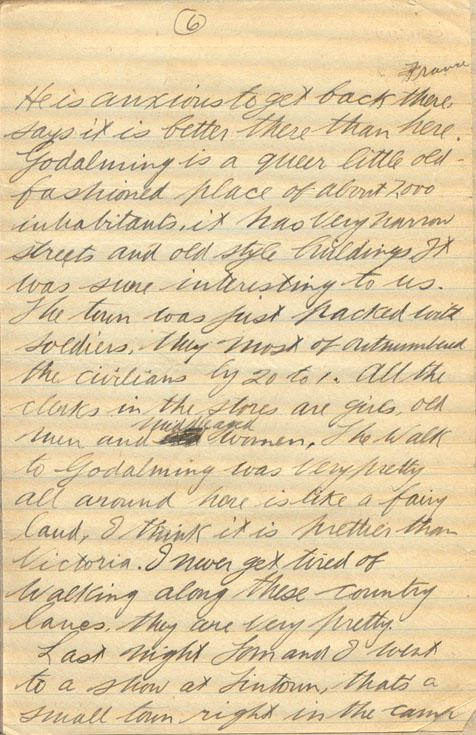 6
France
He is anxious to get back there
says it is better there than here.
Godalming is a queer little old-
fashioned place of about 7,000
inhabitants, it has very narrow
streets and old style buildings It
was sure interesting to us.
The town was just packed with
soldiers, they most of outnumbered
the civilians by 20 to 1. All the
clerks in the stores are girls, old
middleaged
men and women. The walk
to Godalming was very pretty
all around here is like a fairy
land, I think it is prettier than
Victoria. I never get tired of
walking along these country
lanes. they are very pretty.
Last night Tom and I went
to a show at Tintown, thats a
small town right in the camp